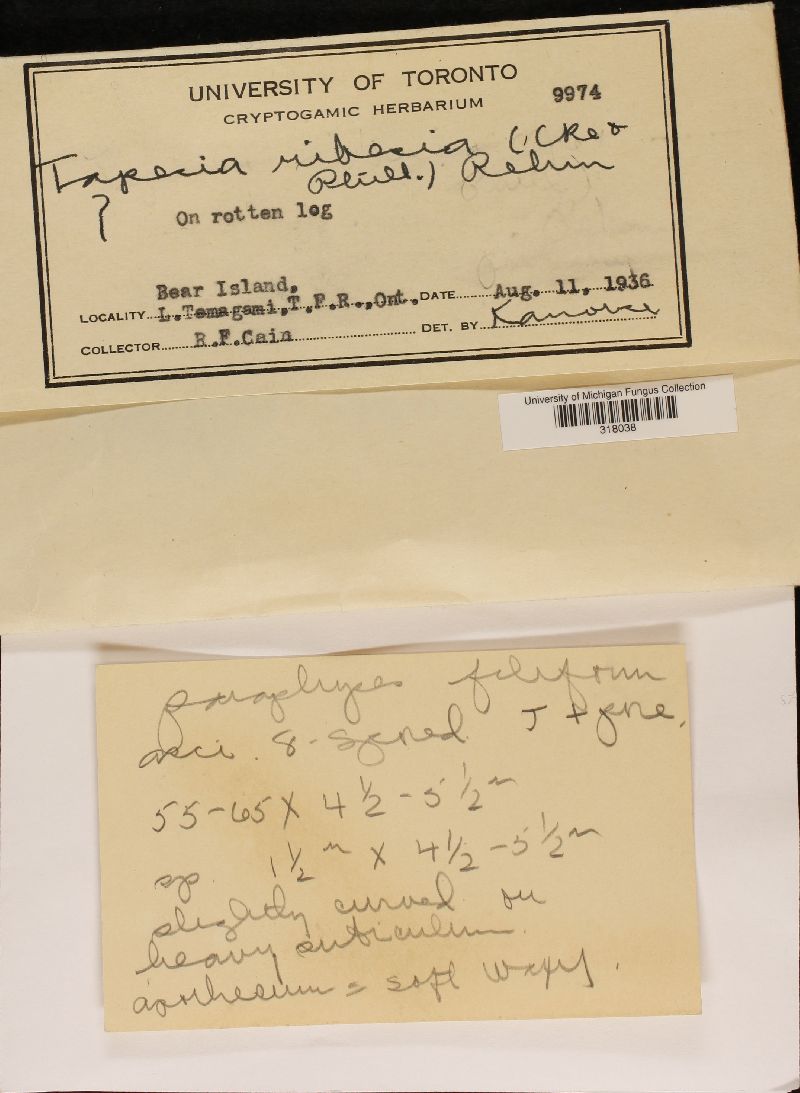 UNIVERSITY OF TORONTO
CRYPTOGAMIC HERBARIUM 9974
Tapesia ribesia (Cke &
Phill.) Rehm
? On rotten log
Bear Island,
LOCALITY L.Temagami,T.F.R.,Ont. DATE Aug. 11, 1936
COLLECTOR R.F.Cain DET. BY Kanouse
University of Michigan Fungus Collection
318038
paraphyses filiform
asci 8-spored J +
55-65 X 4 1/2 - 5 1/2 m
sp. 1 1/2 m X 4 1/2 - 5 1/2 m
slightly curved on
heavy subiculum
apothecium = soft waxy.